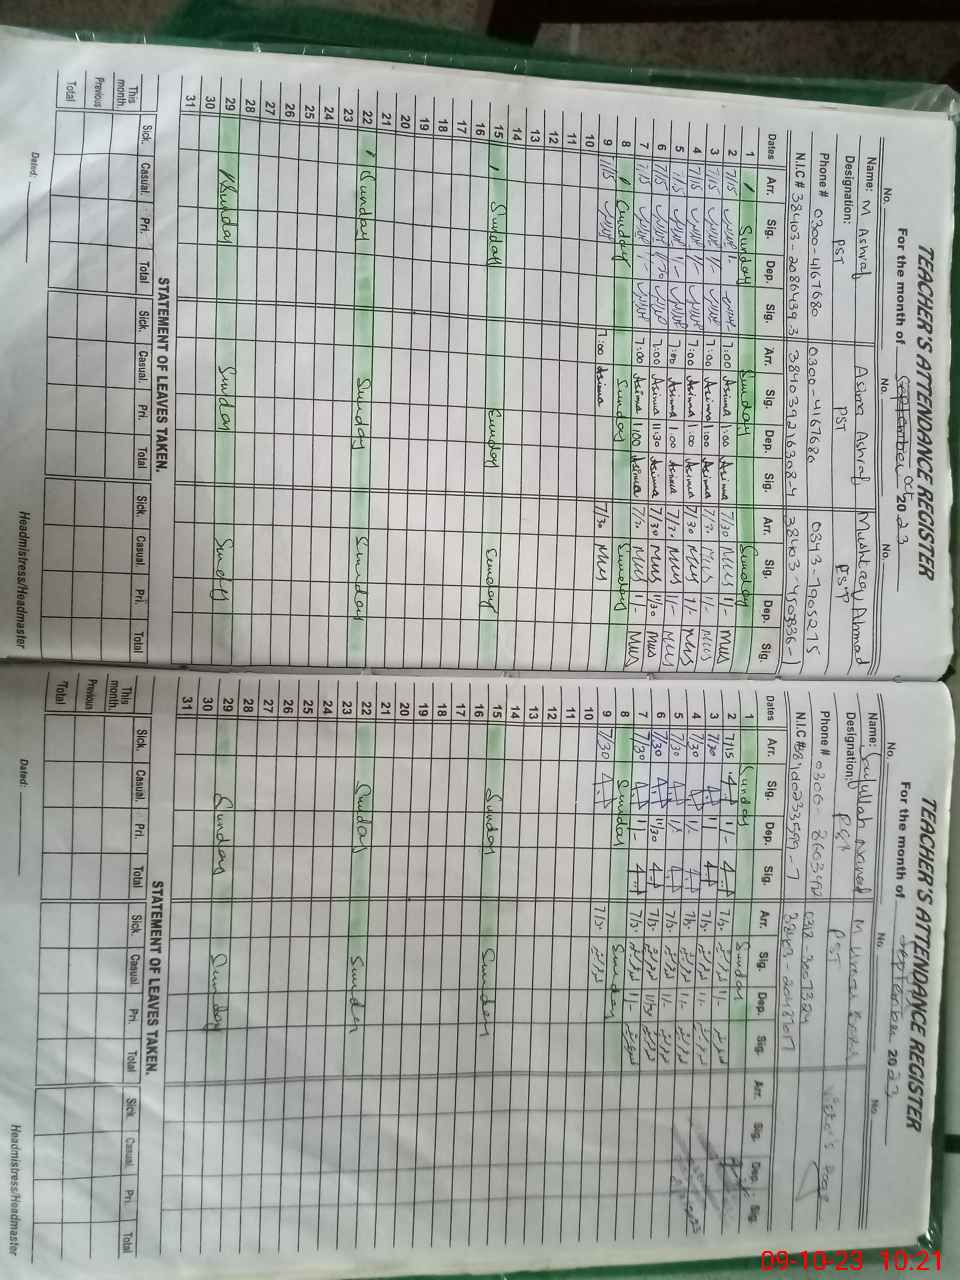 TEACHER'S ATTENDANCE REGISTER
For the month of 20 23
No. No. No.
Name: M Ashraf Asima Ashraf Mushtaq Ahmad
Designation: PST PST PST
Phone # 0300-4167680 0300-4167680 0343-7905275
N.I.C # 38403-2086439-3 384039216308-4
Dates Arr. Sig. Dep. Sig. Arr. Sig. Dep. Sig. Arr. Sig. Dep. Sig.
1 Sunday Sunday Sunday
2 7/15 1/- 7:00 Asima 1:00 Asima 7/30 Mus 1/- Mus
3 7/15 1/- 7:00 Asima 1:00 Asima 7/30 Mus 1/- Mus
4 7/15 1/- 7:00 Asima 1:00 Asima 7/30 Mus 1/- Mus
5 7/15 1/- 7:00 Asima 1:00 Asima 7/30 Mus 1/- Mus
6 7/15 11/30 7:00 Asima 11:30 Asima 7/30 Mus 11/30 Mus
7 7/15 1/- 7:00 Asima 1:00 Asima 7/30 Mus 1/- Mus
8 Sunday Sunday Sunday
9 7/15 7:00 Asima 7/30 Mus
10
11
12
13
14
15 Sunday Sunday Sunday
16
17
18
19
20
21
22 Sunday Sunday Sunday
23
24
25
26
27
28
29 Sunday Sunday Sunday
30
31
STATEMENT OF LEAVES TAKEN.
Sick. Casual. Pri. Total Sick. Casual. Pri. Total Sick. Casual. Pri. Total
This month.
Previous
Total
Dated: Headmistress/Headmaster
TEACHER'S ATTENDANCE REGISTER
For the month of September 20 23
No. No. No.
Name: Saifullah Naveed M
Designation: PST PST
Phone # 0306-8603492
N.I.C #
Dates Arr. Sig. Dep. Sig. Arr. Sig. Dep. Sig. Arr. Sig. Dep. Sig.
1 Sunday Sunday
2 7/15 1/- 7/30 1/-
3 7/30 1/- 7/30 1/-
4 7/30 1/- 7/30 1/-
5 7/30 1/- 7/30 1/-
6 7/30 11/30 7/30 11/30
7 7/30 1/- 7/30 1/-
8 Sunday Sunday
9 7/30 7/30
10
11
12
13
14
15 Sunday Sunday
16
17
18
19
20
21
22 Sunday Sunday
23
24
25
26
27
28
29 Sunday Sunday
30
31
STATEMENT OF LEAVES TAKEN.
Sick. Casual. Pri. Total Sick. Casual. Pri. Total Sick. Casual. Pri. Total
This month.
Previous
Total
Dated: Headmistress/Headmaster
09-10-23 10:21